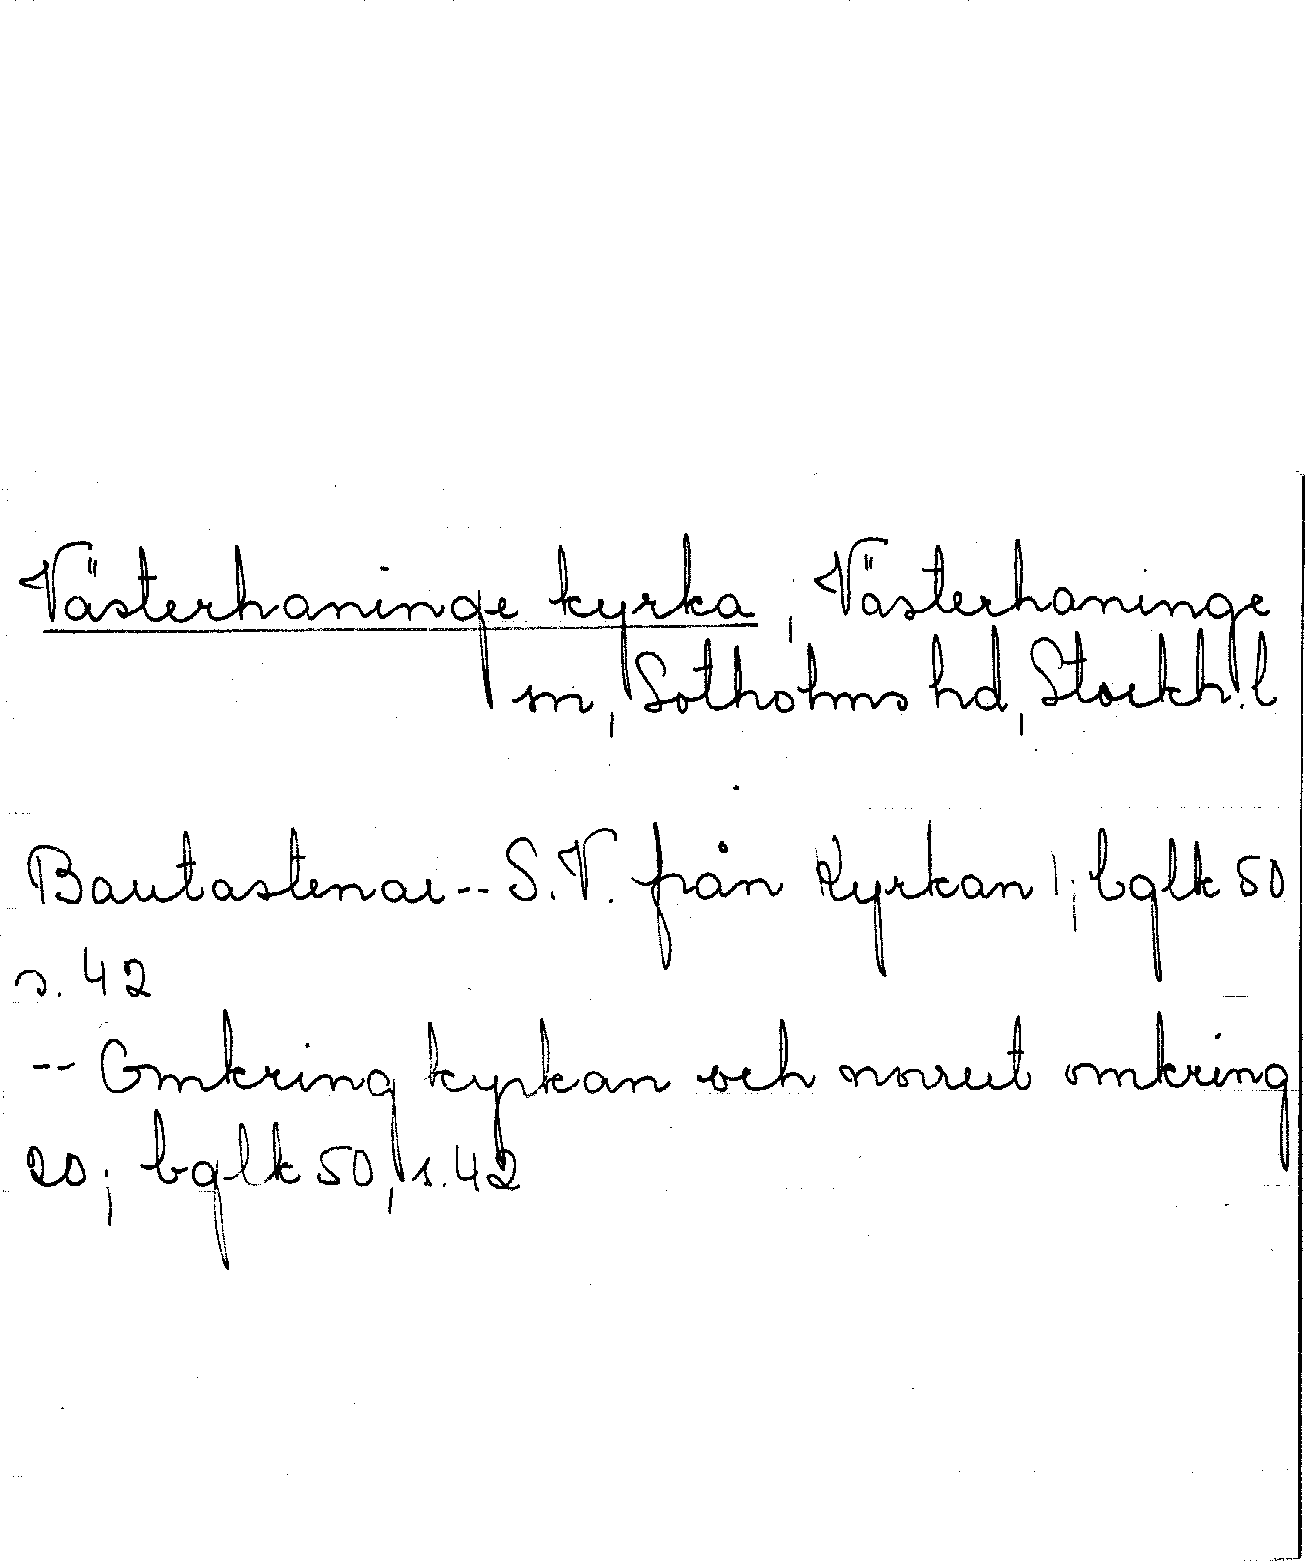 Västerhaninge kyrka, Västerhaninge
sn, Sotholms hd, Stockh. l
Bautastenar -- S.V. från Kyrkan 1; bglk 50
s. 42
-- Omkring kyrkan och norrut omkring
20; bglk 50, s. 42